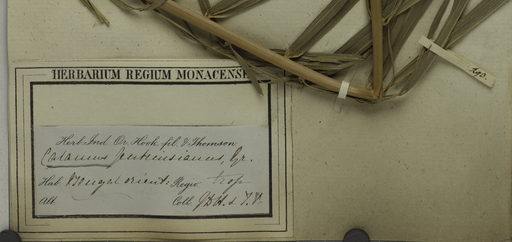 HERBARIUM REGIUM MONACENSE
Herb. Ind. Or. Hook. fil. & Thomson
Calamus Gr.
Hab. Bengal orient. Regio trop.
Alt. Coll. J.D.H. & T.T.